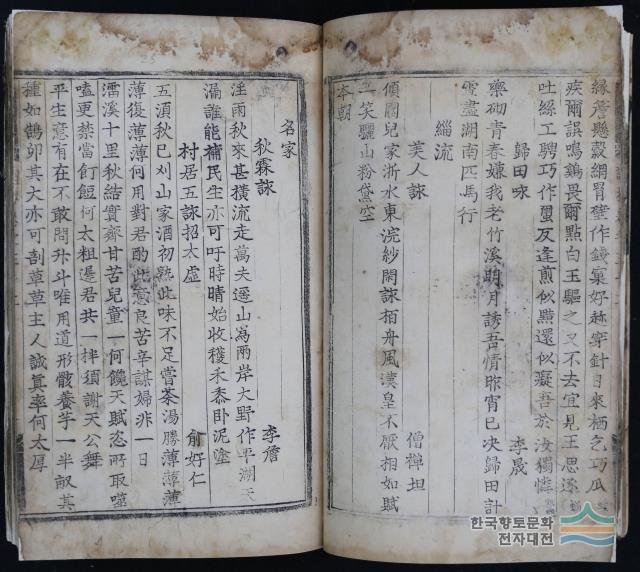 緣簷懸殼網罥莖作錢窠好趂穿針日來栖乞巧瓜
疾爾誤鳴鷄畏爾點白玉驅之又不去宜見王思逐
吐絲工騁巧作蠒反逢煎似黠還似癡吾於汝獨憐
歸田咏 李晟
藥砌青春嫌我老竹溪明月誘吾情昨宵已决歸田計
雪盡湖南匹馬行
緇流
美人詠 僧禪坦
傾國兒家浙水東浣紗閑詠栢舟風漢皇不厭相如賦
一笑驪山粉黛空
本朝
名家
秋霖詠 李詹
淫雨秋來甚橫流走萬夫遥山爲兩岸大野作平湖天
漏誰能補民生亦可吁時晴始收穫禾黍卧泥塗
村居五詠招太虛 兪好仁
五湏秋已刈山家酒初熟此味不足嘗茶湯勝薄薄薄
薄復薄薄何用對君酌此意良苦辛謀婦非一日
濡溪十里秋結實齊甘苦兒童一何饞天賦恣所取噬
嗑更禁當飣餖何太粗邊君共一拌須謝天公舞
平生意有在不敢問升斗唯用道形骸養芋一半畝其
種如鵠卵其大亦可刮草草主人誠真率何太厚
한국향토문화
전자대전